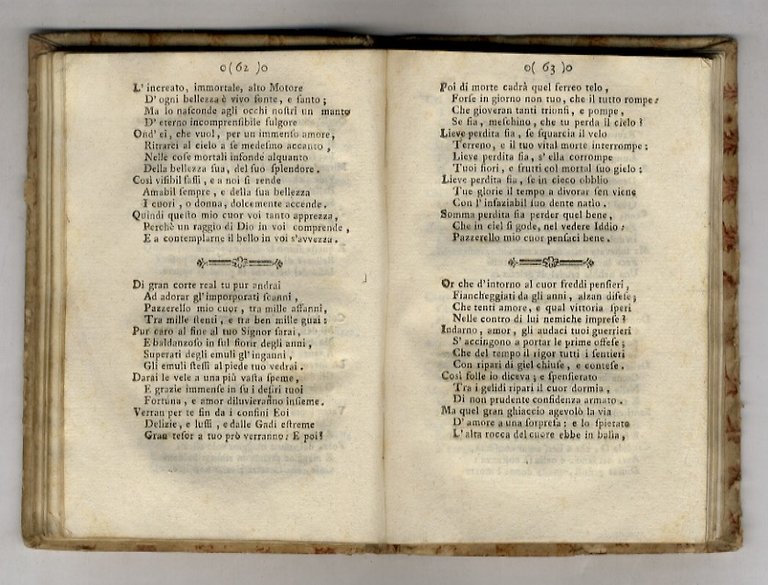 0(62)0
L' increato, immortale, alto Motore
D' ogni bellezza è vivo fonte, e ſanto;
Ma lo naſconde agli occhi noſtri un manto
D' eterno incomprenſibile fulgore
Ond' ei, che vuol, per un immenſo amore,
Ritrarci al cielo a ſe medeſimo accanto,
Nelle coſe mortali infonde alquanto
Della bellezza ſua, del ſuo ſplendore.
Così viſibil faſſi, e a noi ſi rende
Amabil ſempre, e della ſua bellezza
I cuori, o donna, dolcemente accende.
Quindi queſto mio cuor voi tanto apprezza,
Perchè un raggio di Dio in voi comprende,
E a contemplarne il bello in voi s'avvezza.
Di gran corte real tu pur andrai
Ad adorar gl'imporporati ſcanni,
Pazzerello mio cuor, tra mille affanni,
Tra mille ſtenti, e tra ben mille guai:
Pur caro al fine al tuo Signor ſarai,
E baldanzoſo in ſul fiorir degli anni,
Superati degli emuli gl'inganni,
Gli emuli ſteſſi al piede tuo vedrai.
Darai le vele a una più vaſta ſpeme,
E grazie immenſe in ſu i deſiri tuoi
Fortuna, e amor diluvieranno inſieme.
Verran per te fin da i confini Eoi
Delizie, e luſſi, e dalle Gadi eſtreme
Gran teſor a tuo prò verranno: E poi?
0(63)0
Poi di morte cadrà quel ferreo telo,
Forſe in giorno non tuo, che il tutto rompe:
Che gioveran tanti trionfi, e pompe,
Se fia, meſchino, che tu perda il cielo?
Lieve perdita fia, ſe ſquarcia il velo
Terreno, e il tuo vital morte interrompe;
Lieve perdita fia, s' ella corrompe
Tuoi fiori, e frutti col mortal ſuo gielo;
Lieve perdita fia, ſe in cieco obblio
Tue glorie il tempo a divorar ſen viene
Con l' inſaziabil ſuo dente natio.
Somma perdita fia perder quel bene,
Che in ciel ſi gode, nel vedere Iddio:
Pazzerello mio cuor penſaci bene.
Or che d'intorno al cuor freddi penſieri,
Fiancheggiati da gli anni, alzan difeſe;
Che tenti amore, e qual vittoria ſperi
Nelle contro di lui nemiche impreſe?
Indarno, amor, gli audaci tuoi guerrieri
S' accingono a portar le prime offeſe;
Che del tempo il rigor tutti i ſentieri
Con ripari di giel chiuſe, e conteſe.
Così folle io diceva; e ſpenſierato
Tra i gelidi ripari il cuor dormia,
Di non prudente confidenza armato.
Ma quel gran ghiaccio agevolò la via
D' amore a una ſorpreſa: e lo ſpietato
L' alta rocca del cuore ebbe in balia,